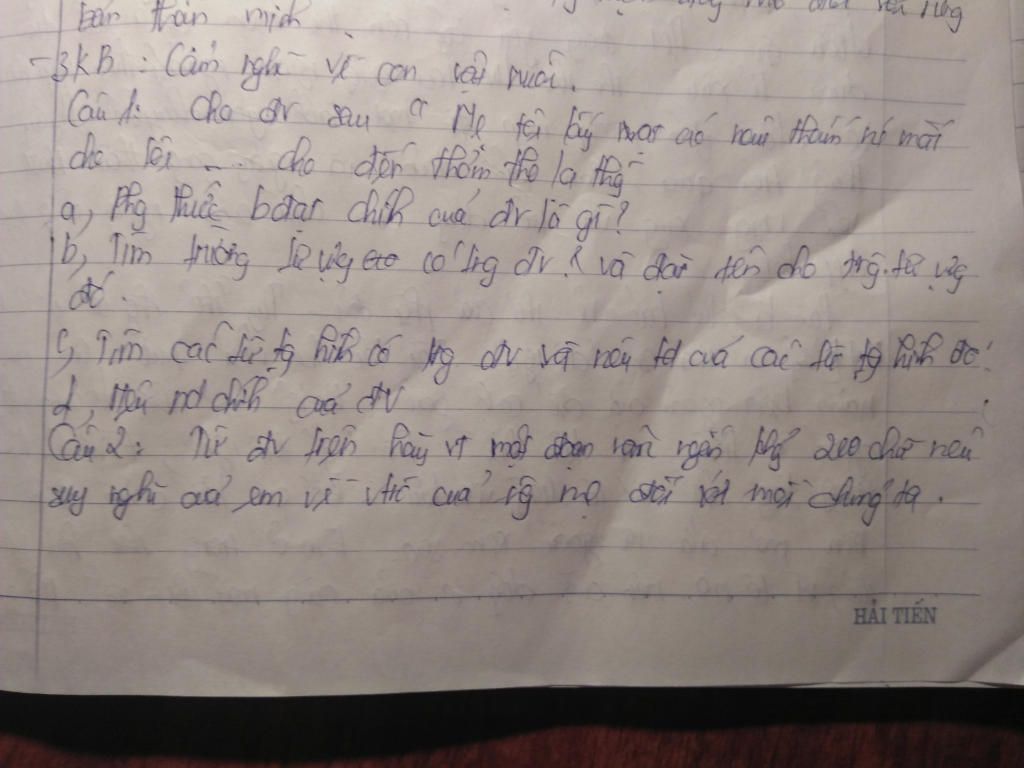 bản thân mình
- 3KB: Cảm nghĩ về con vật nuôi.
Câu 1: Cho đv sau "Mẹ tôi lấy vạt áo nâu thấm nc mắt
cho tôi ... cho đến thơm tho lạ thg
a, Phg thức bđạt chíh cuả đv là gì?
b, Tìm trường từ vựng có trg đv? và đặt tên cho trg từ vựng
đó.
c, Tìm các từ tg hìh có trg đv và nêu td cuả các từ tg hìh đó.
d, Nêu nd chíh cuả đv
Câu 2: Từ đv trên hãy vt một đoạn văn ngắn 200 chữ nêu
suy nghĩ cuả em về vtrò cuả ng mẹ đối với mỗi chúng ta.
HẢI TIẾN